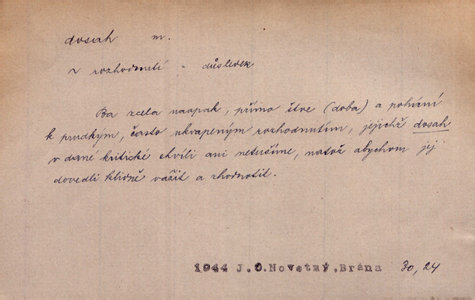 dosah m.
z rozhodnutí - důsledek
Ba zcela naopak, přímo štve (doba) a pohání
k prudkým, často ukvapeným rozhodnutím, jejichž dosah
v dané kritické chvíli ani netušíme, natož abychom jej
dovedli klidně vážit a zhodnotit.
1944 J.O.Novotný,Brána 30,24